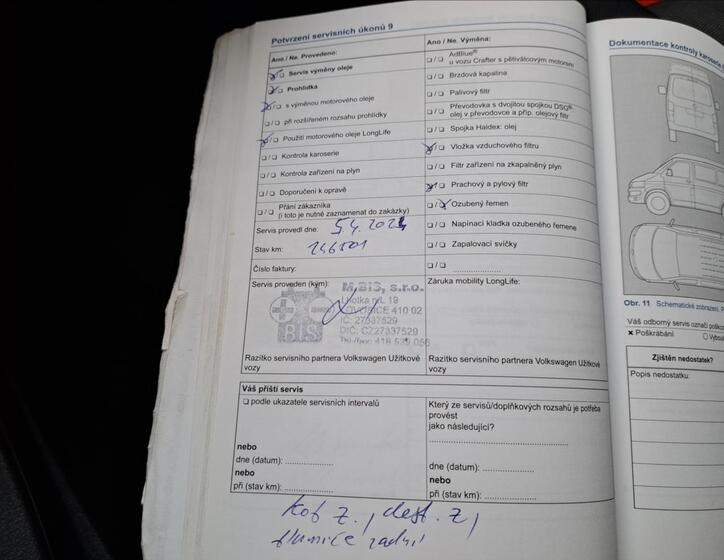 Potvrzení servisních úkonů 9
Ano / Ne. Provedeno:
❏/❏ Servis výměny oleje
❏/❏ Prohlídka
❏/❏ s výměnou motorového oleje
❏/❏ při rozšířeném rozsahu prohlídky
❏/❏ Použití motorového oleje LongLife
❏/❏ Kontrola karoserie
❏/❏ Kontrola zařízení na plyn
❏/❏ Doporučení k opravě
❏/❏ Přání zákazníka
(i toto je nutné zaznamenat do zakázky)
Servis provedl dne: 5.4.2024
Stav km: 246501
Číslo faktury:
Servis proveden (kým):
M.BIS, s.r.o.
Lhotka n/L 19
LOVOSICE 410 02
IČ: 27337529
DIČ: CZ27337529
Tel./fax: 416 539 056
BIS
Razítko servisního partnera Volkswagen Užitkové
vozy
Ano / Ne. Výměna:
❏/❏ AdBlue®
u vozu Crafter s pětiválcovým motorem
❏/❏ Brzdová kapalina
❏/❏ Palivový filtr
❏/❏ Převodovka s dvojitou spojkou DSG®:
olej v převodovce a příp. olejový filtr
❏/❏ Spojka Haldex: olej
❏/❏ Vložka vzduchového filtru
❏/❏ Filtr zařízení na zkapalněný plyn
❏/❏ Prachový a pylový filtr
❏/❏ Ozubený řemen
❏/❏ Napínací kladka ozubeného řemene
❏/❏ Zapalovací svíčky
❏/❏ ....................
Záruka mobility LongLife:
Razítko servisního partnera Volkswagen Užitkové
vozy
Váš příští servis
❏ podle ukazatele servisních intervalů
nebo
dne (datum): ...............
nebo
při (stav km): ...............
Který ze servisů/doplňkových rozsahů je potřeba
provést
jako následující?
........................................
dne (datum): ...............
nebo
při (stav km): ...............
kot z., dest. z,
tlumiče zadní
Dokumentace kontroly karoserie
Obr. 11 Schematické zobrazení,
Váš odborný servis označí
× Poškrábání
Zjištěn nedostatek?
Popis nedostatku: